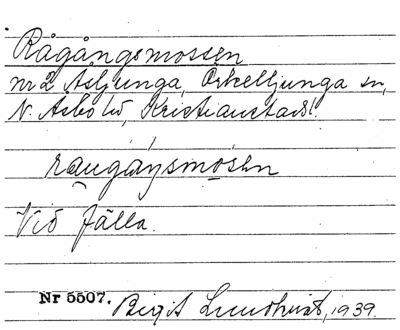 Rågångsmossen
nr 2 Åsljunga, Örkelljunga sn,
N. Åsbo hd, Kristianstads l.
raugångsmosen
Vid Fjälla.
Nr 5507. Birgit Lundkvist, 1939.